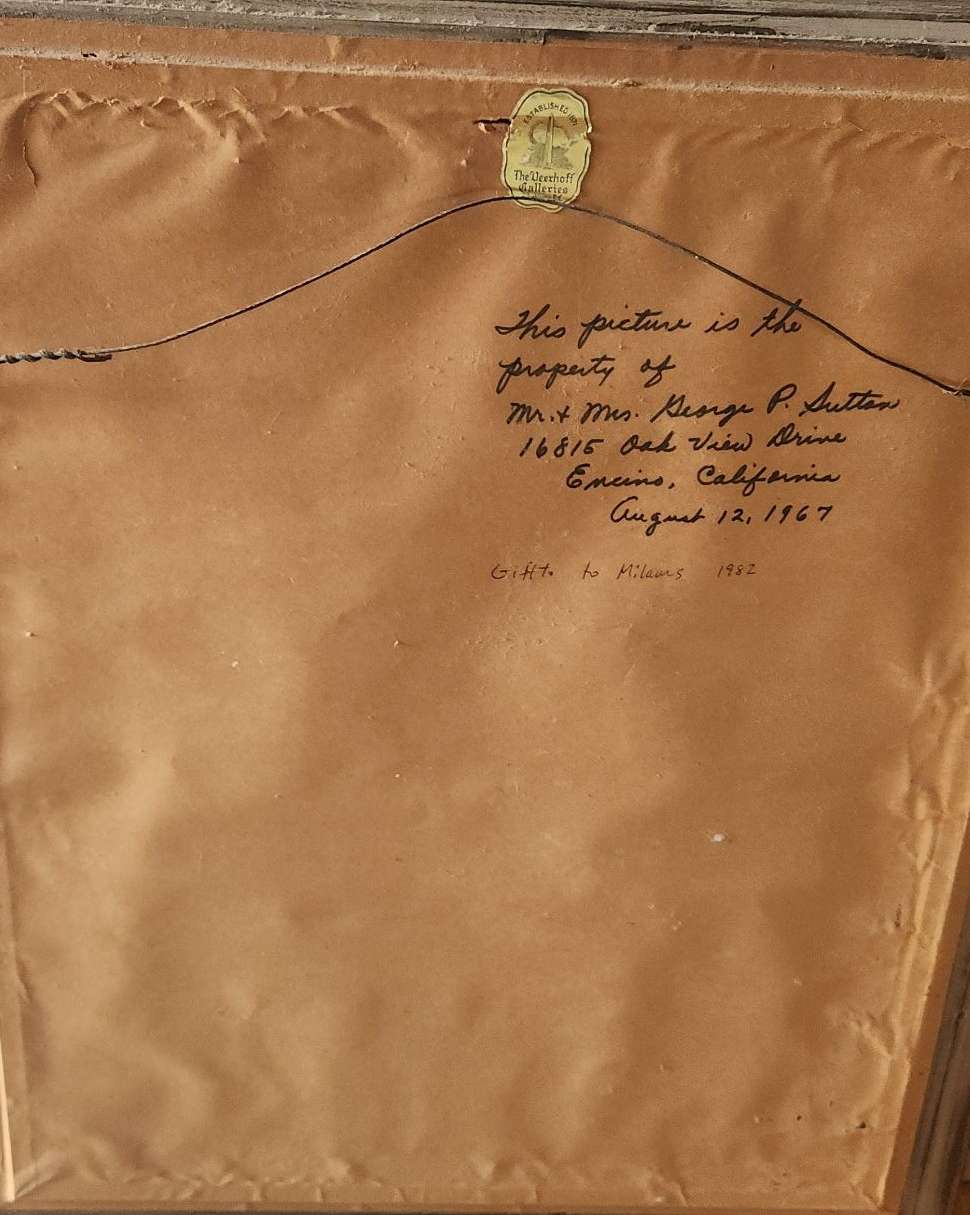 ESTABLISHED 1871
The Veerhoff
Galleries
This picture is the
property of
Mr. & Mrs. George P. Sutton
16815 Oak View Drive
Encino, California
August 12, 1967
to 1982